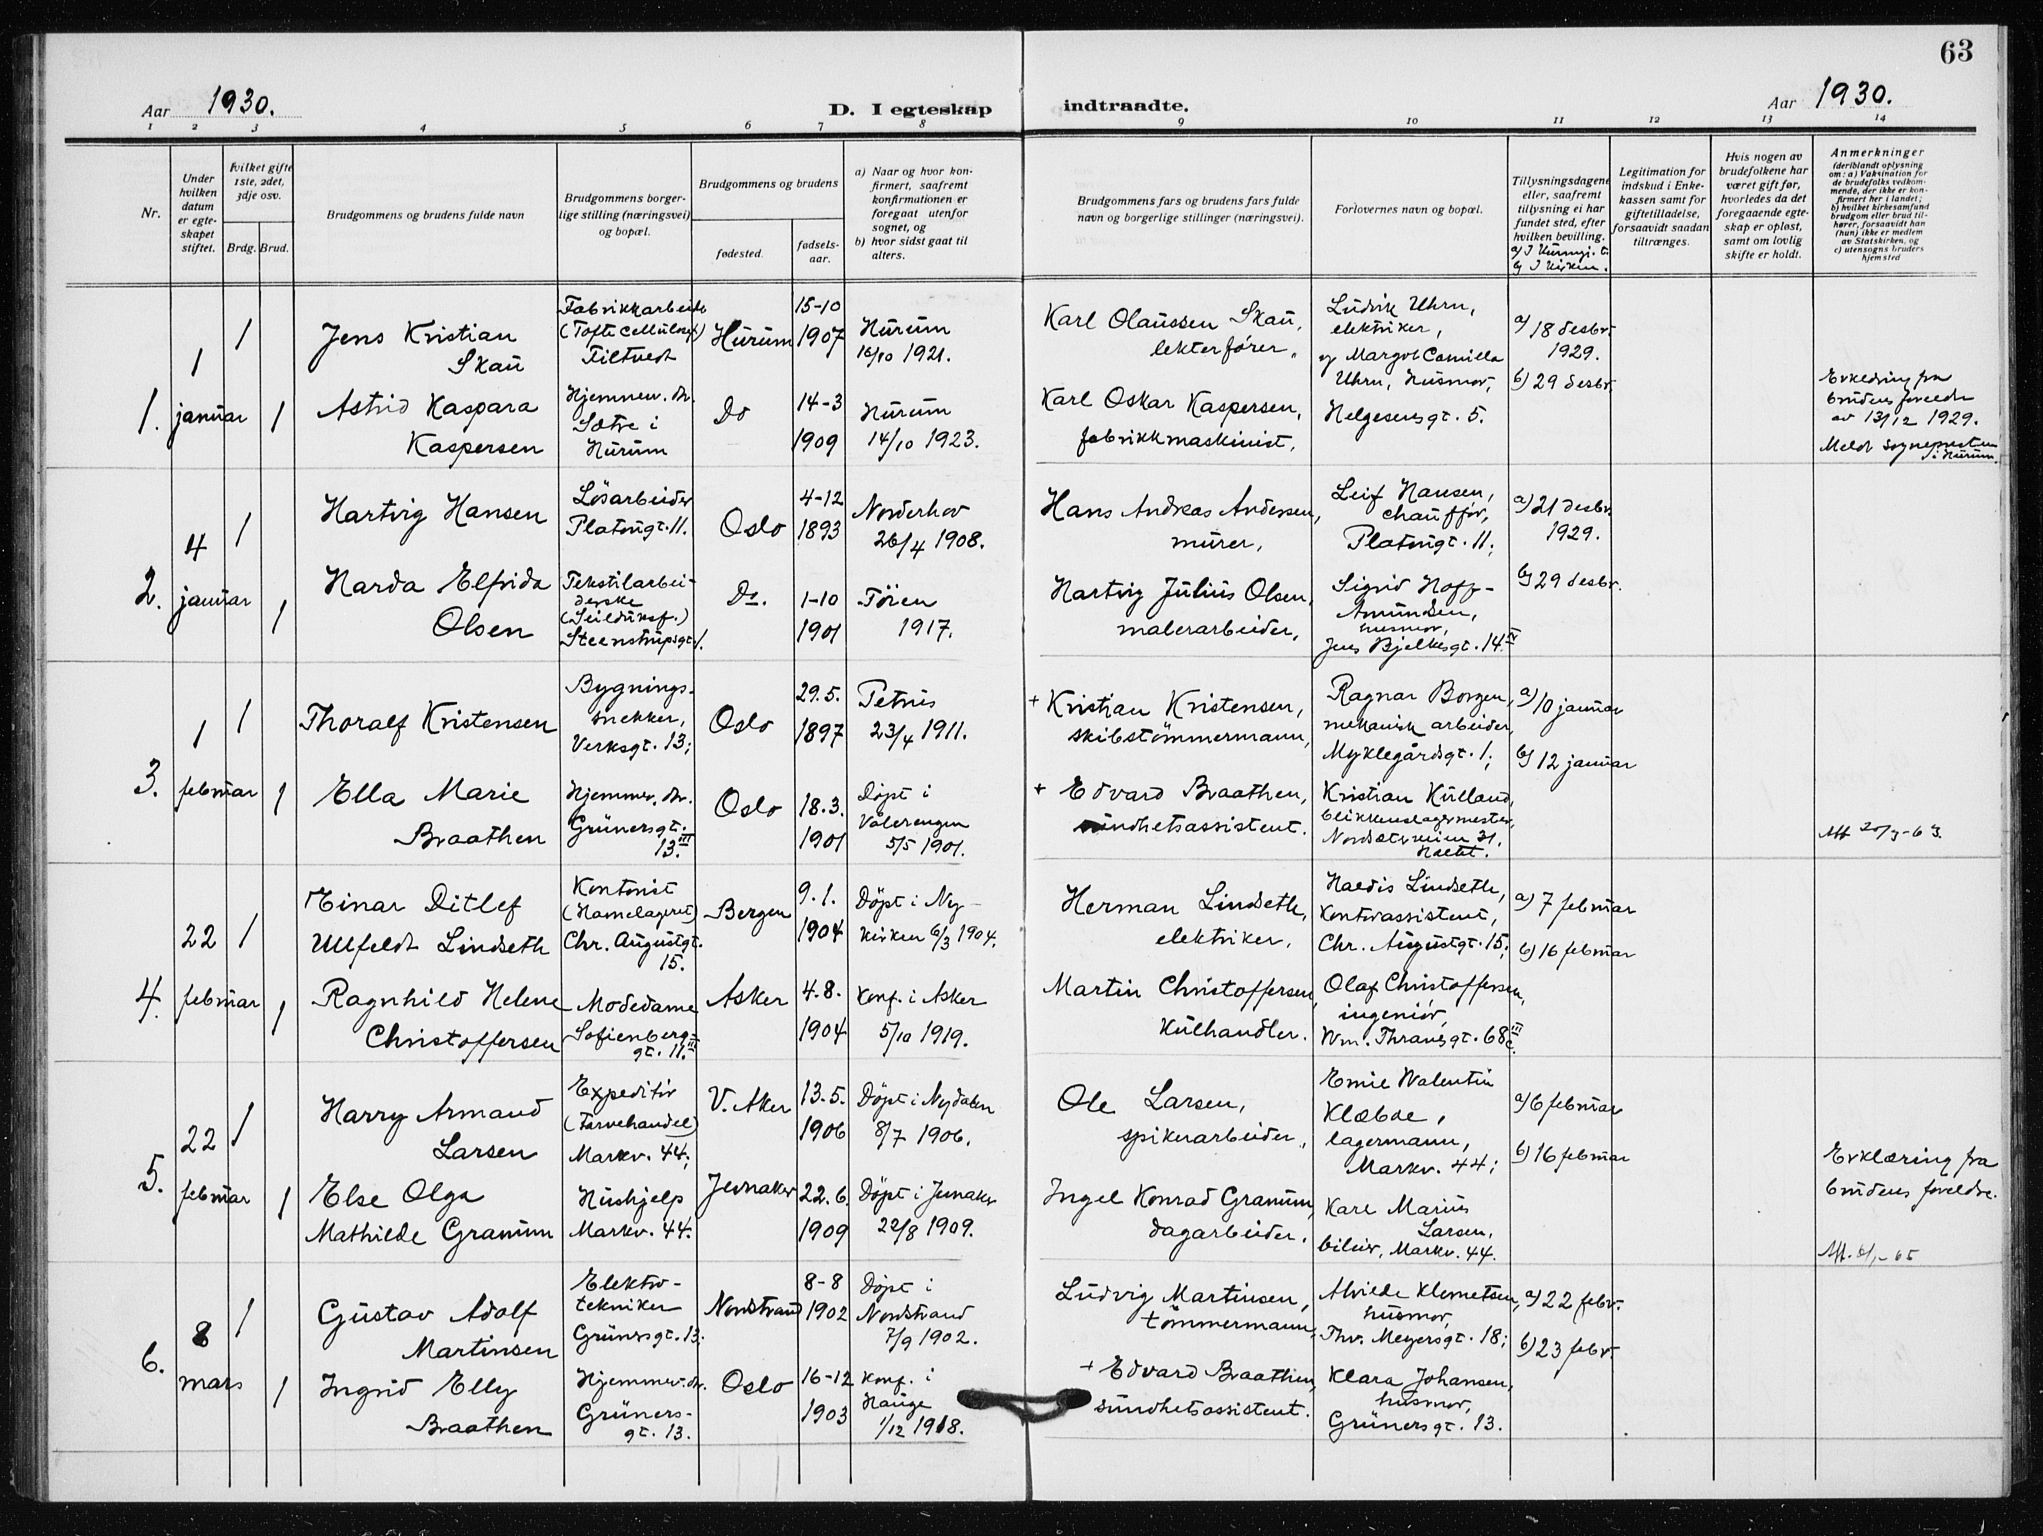 63
Aar 1930.
D. I egteskap indtraadte.
Aar 1930.
1 2 3 4 5 6 7 8 9 10 11 12 13 14
Nr.
Under hvilken datum er egteskapet stiftet.
Hvilket gifte 1ste, 2det, 3dje osv.
Brdg. Brud.
Brudgommens og brudens fulde navn
Brudgommens borgerlige stilling (næringsvei) og bopæl.
Brudgommens og brudens
fødested.
fødselsaar.
a) Naar og hvor konfirmert, saafremt konfirmationen er foregaat utenfor sognet, og
b) hvor sidst gaat til alters.
Brudgommens fars og brudens fars fulde navn og borgerlige stillinger (næringsvei).
Forlovernes navn og bopæl.
Tillysningsdagene eller, saafremt tillysning ei har fundet sted, efter hvilken bevilling.
b) I Kirken.
Legitimation for indskud i Enkekassen samt for giftetilladelse, forsaavidt saadan tiltrænges.
Hvis nogen av brudefolkene har været gift før, hvorledes da det foregaaende egteskap er opløst, samt om lovlig skifte er holdt.
Anmerkninger
(deriblandt oplysning om: a) Vaksination for de brudefolks vedkommende, der ikke er konfirmert her i landet; b) hvilket kirkesamfund brudgom eller brud tilhører, forsaavidt han (hun) ikke er medlem av Statskirken, og c) utensogns bruders hjemsted
1.
1
januar
1
Jens Kristian
Skau
Fabrikkarbeider
(Tofte Cellulosef.)
Tiltvedt
Hurum
15-10
1907
Hurum
16/10 1921.
Karl Olaussen Skau,
lekterfører,
Ludvik Uhru,
elektriker,
og Margot Camilla
Uhru, husmor,
Helgesensgt. 5.
a) 18 desbr.
1929.
b) 29 desbr.
1
Astrid Kaspara
Kaspersen
Hjemmev. dr.
Sætre i
Hurum
Do
14-3
1909
Hurum
14/10 1923.
Karl Oskar Kaspersen,
fabrikkmaskinist,
Erklæring fra
brudens foreldre
av 13/12 1929.
Meldt sognepresten
i Hurum.
2.
4
januar
1
Hartvig Hansen
Løsarbeider
Platousgt. 11.
Oslo
4-12
1893
Norderhov
26/4 1908.
Hans Andreas Andersen,
murer,
Leif Hansen,
chauffør,
Platousgt. 11;
a) 21 desbr.
1929.
b) 29 desbr.
1
Harda Elfrida
Olsen
Tekstilarbeiderske
(Seilduksf.)
Steenstrupsgt. 1.
Do.
1-10
1901
Tøien
1917.
Hartvig Julius Olsen,
malerarbeider,
Sigrid Hoff-
Amundsen,
husmor,
Jens Bjelkesgt. 14 IV
3.
1
februar
1
Thoralf Kristensen
Bygningssnekker,
Verksgt. 13;
Oslo
29.5.
1897
Petrus
23/4 1911.
+ Kristian Kristensen,
skibstömmermann,
Ragnar Borgen,
mekanisk arbeider,
Myklegårdsgt. 1;
a) 10 januar
b) 12 januar
1
Ella Marie
Braathen
Hjemmev. dr.
Grünersgt.
13. III
Oslo
18.3.
1901
Döpt i
Vålerengen
5/5 1901.
+ Edvard Braathen,
sundhetsassistent.
Kristian Kulland,
blikkenslagermester,
31.
Att 20/3-63.
4.
22
februar
1
Einar Ditlef
Ullfeldt Lindseth
Kontorist
(Hamelageret)
Chr. Augustgt.
15.
Bergen
9.1.
1904
Döpt i Ny-
kirken 6/3 1904.
Herman Lindseth,
elektriker.
Haldis Lindseth,
kontorassistent,
Chr. Augustgt. 15;
a) 7 februar
b) 16 februar
1
Ragnhild Helene
Christoffersen
Modedame
Sofienberg-
gt. 11. III
Asker
4.8.
1904
Konf. i Asker
5/10 1919.
Martin Christoffersen,
Kulhandler.
Olaf Christoffersen,
ingeniör,
Wm. Thranesgt. 68 c. III
5.
22
februar
1
Harry Armand
Larsen
Expeditör
(Farvehandel)
Markv. 44;
V. Aker
13.5.
1906
Döpt i Nydalen
8/7 1906.
Ole Larsen,
spikerarbeider,
Emil Walentin
Klæboe,
lagermann,
Markv. 44;
a) 6 februar
b) 16 februar
1
Else Olga
Mathilde Granum
Hushjelp
Markv. 44.
Jevnaker
22.6.
1909
Döpt i Jevnaker
22/8 1909.
Ingel Konrad Granum,
dagarbeider.
Karl Marius
Larsen,
bileier, Markv. 44.
Erklæring fra
brudens foreldre.
6.
8
mars
1
Gustav Adolf
Martinsen
Elektro-
tekniker
Grünersgt. 13.
Nordstrand
8-8
1902
Döpt i
Nordstrand
7/9 1902.
Ludvig Martinsen,
tömmermann,
Alvilde Klemetsen,
husmor,
Thv. Meyersgt. 18;
a) 22 febr.
b) 23 febr.
1
Ingrid Elly
Braathen
Hjemmev. dr.
Grüners-
gt. 13.
Oslo
16-12
1903
Konf. i
Hauge
1/12 1918.
+ Edvard Braathen,
sundhetsassistent.
Klara Johansen,
husmor,
Grünersgt. 13.